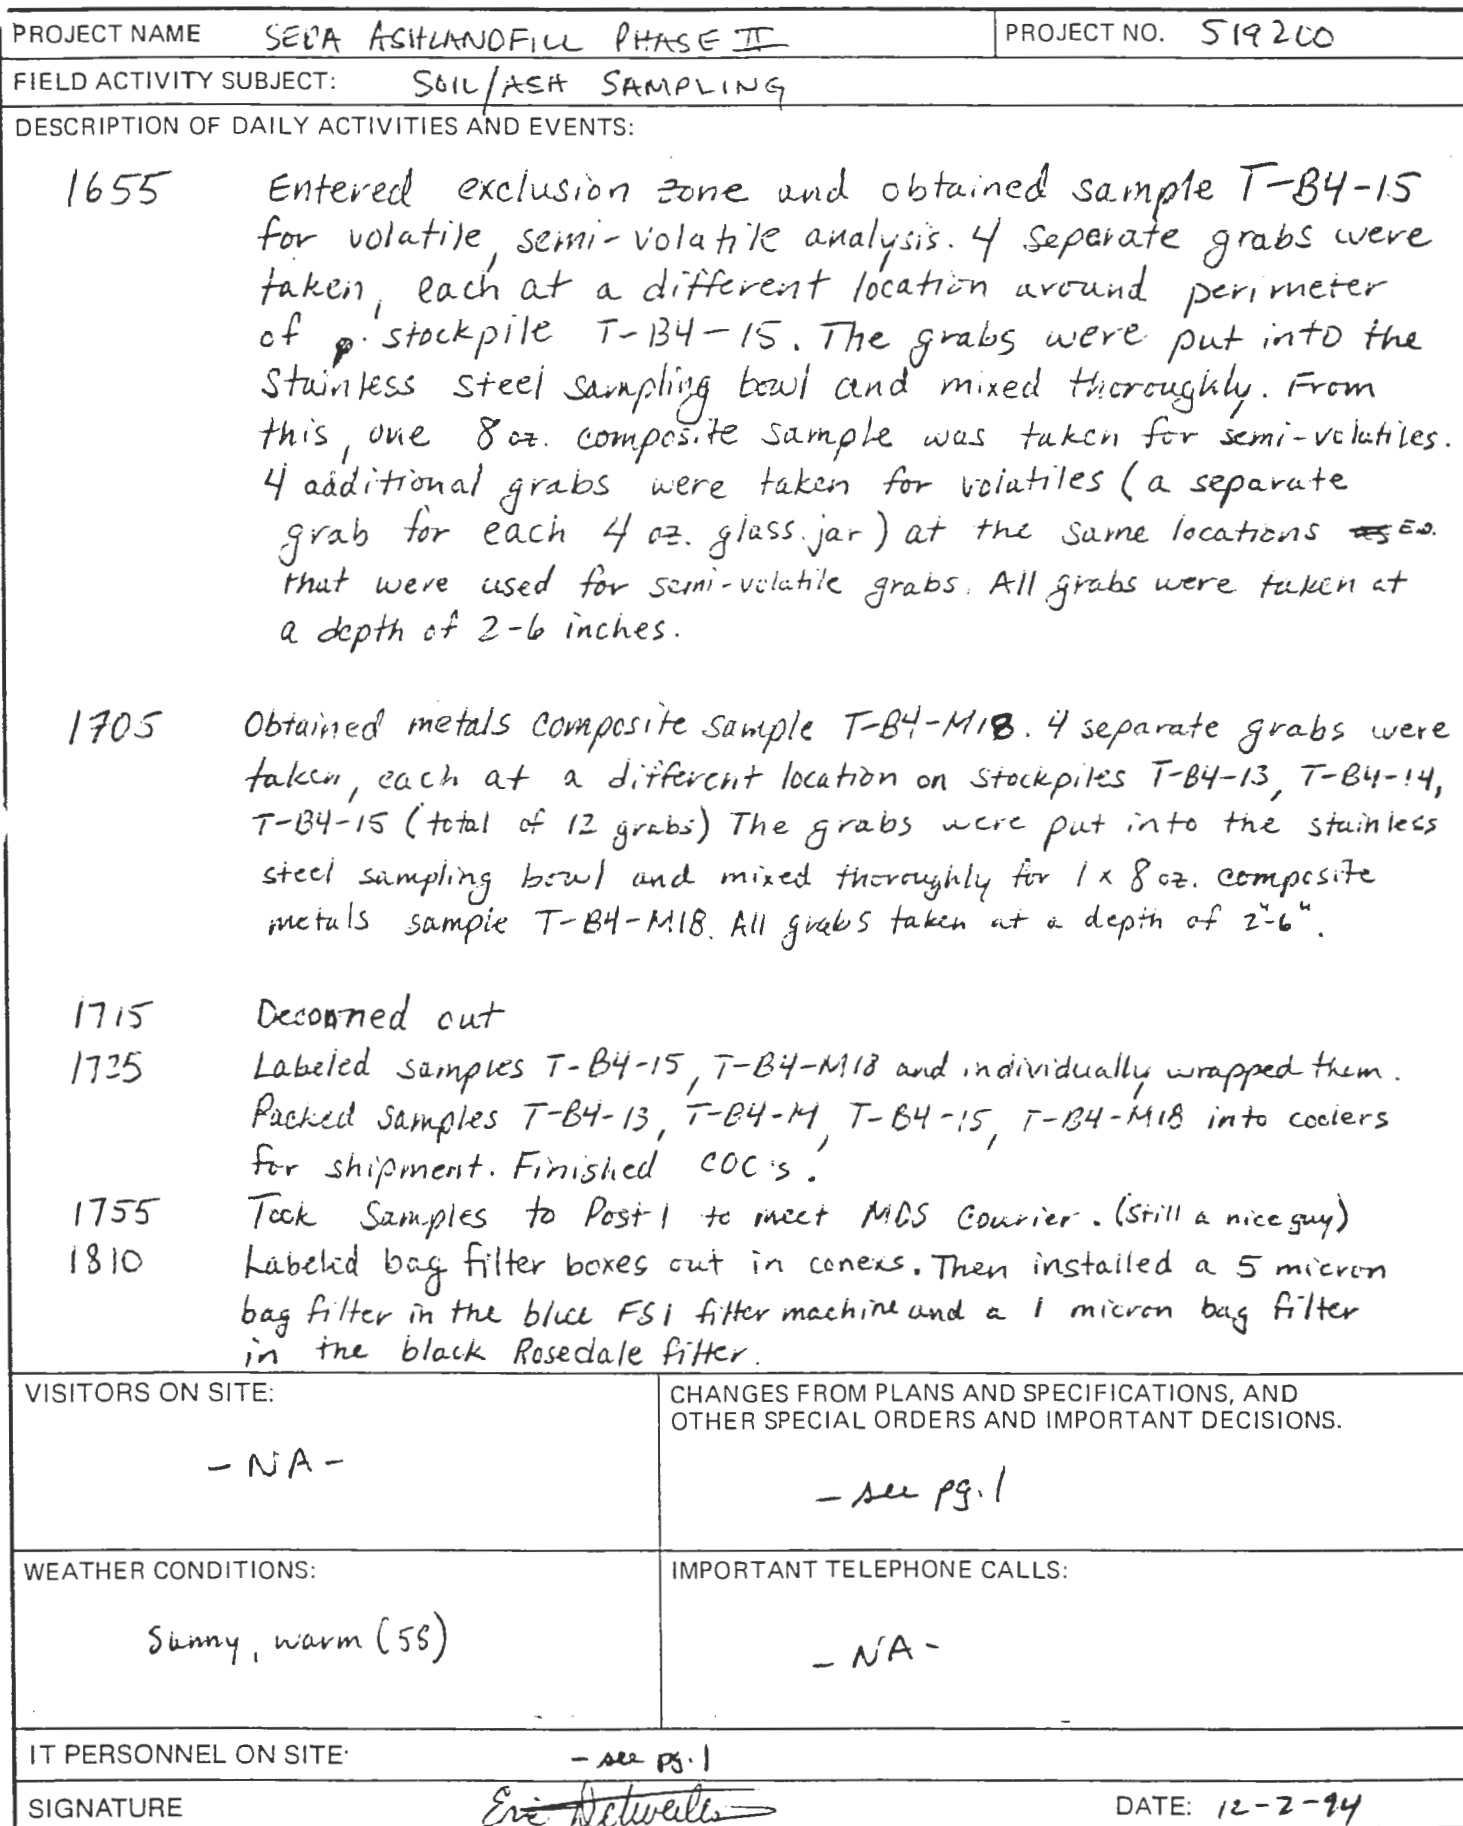 PROJECT NAME SEDA ASHLANDFILL PHASE II PROJECT NO. 519200
FIELD ACTIVITY SUBJECT: SOIL/ASH SAMPLING
DESCRIPTION OF DAILY ACTIVITIES AND EVENTS:
1655 Entered exclusion zone and obtained sample T-B4-15
for volatile, semi-volatile analysis. 4 separate grabs were
taken, each at a different location around perimeter
of stockpile T-B4-15. The grabs were put into the
Stainless steel sampling bowl and mixed thoroughly. From
this, one 8 oz. composite sample was taken for semi-volatiles.
4 additional grabs were taken for volatiles (a separate
grab for each 4 oz. glass jar) at the same locations as E.D.
that were used for semi-volatile grabs. All grabs were taken at
a depth of 2-6 inches.
1705 Obtained metals composite sample T-B4-M18. 4 separate grabs were
taken, each at a different location on stockpiles T-B4-13, T-B4-14,
T-B4-15 (total of 12 grabs) The grabs were put into the stainless
steel sampling bowl and mixed thoroughly for 1 x 8 oz. composite
metals sample T-B4-M18. All grabs taken at a depth of 2"-6".
1715 Deconned out
1725 Labeled samples T-B4-15, T-B4-M18 and individually wrapped them.
Packed samples T-B4-13, T-B4-14, T-B4-15, T-B4-M18 into coolers
for shipment. Finished COC's.
1755 Took Samples to Post 1 to meet MDS Courier. (Still a nice guy)
1810 Labeled bag filter boxes out in conexs. Then installed a 5 micron
bag filter in the blue FSI filter machine and a 1 micron bag filter
in the black Rosedale filter.
VISITORS ON SITE:
- NA -
CHANGES FROM PLANS AND SPECIFICATIONS, AND
OTHER SPECIAL ORDERS AND IMPORTANT DECISIONS.
- see pg. 1
WEATHER CONDITIONS:
Sunny, warm (55)
IMPORTANT TELEPHONE CALLS:
- NA -
IT PERSONNEL ON SITE: - see pg. 1
SIGNATURE Eric Detweiler DATE: 12-2-94